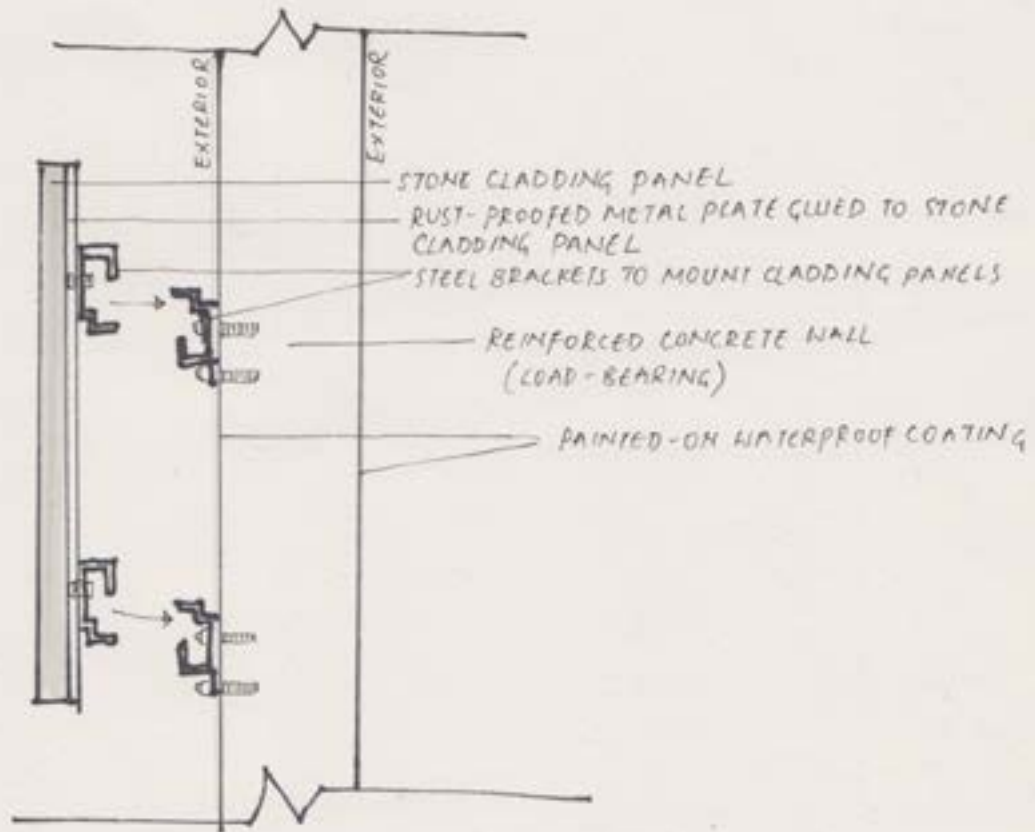 EXTERIOR
EXTERIOR
STONE CLADDING PANEL
RUST-PROOFED METAL PLATE GLUED TO STONE
CLADDING PANEL
STEEL BRACKETS TO MOUNT CLADDING PANELS
REINFORCED CONCRETE WALL
(LOAD-BEARING)
PAINTED-ON WATERPROOF COATING